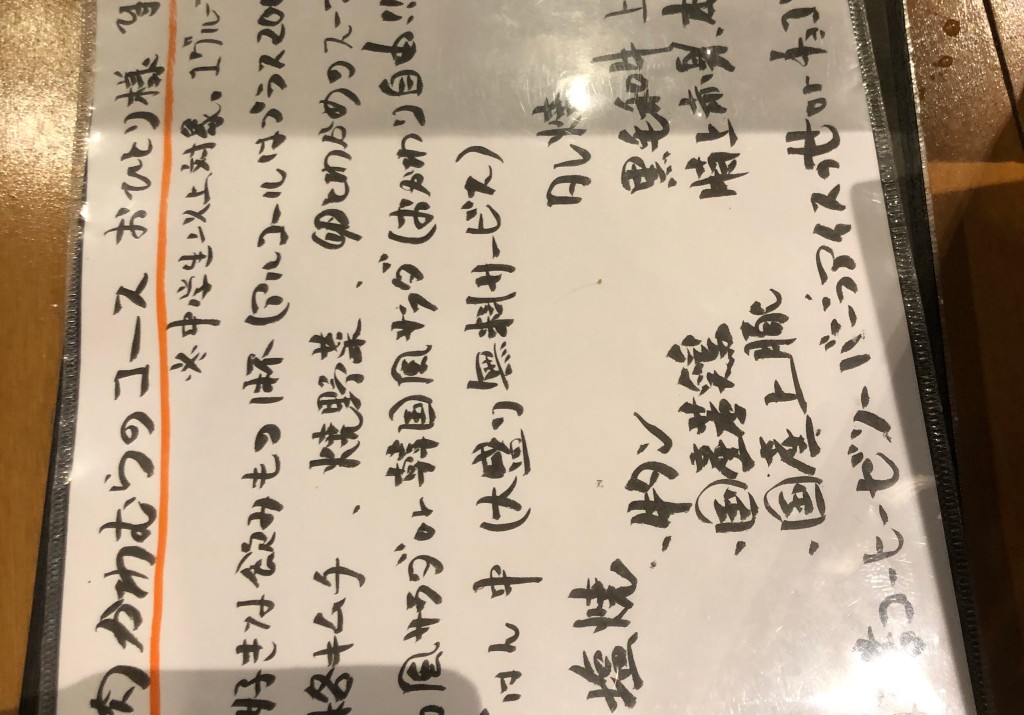 肉かわむらのコース おひとり様
※中学生以上対象。1グループ
好きな飲みもの1杯(アルコールはプラス200
格キムチ、焼野菜、卵とわかめのスープ
風サラダor韓国風サラダ(おかわり自由!!
はん 中 (大盛り無料サービス)
塩焼
・牛タン
・国産若鶏
・国産上豚
タレ焼
黒毛和牛 上
特上赤身、本
コーヒーゼリー バニラアイス
orチョコ